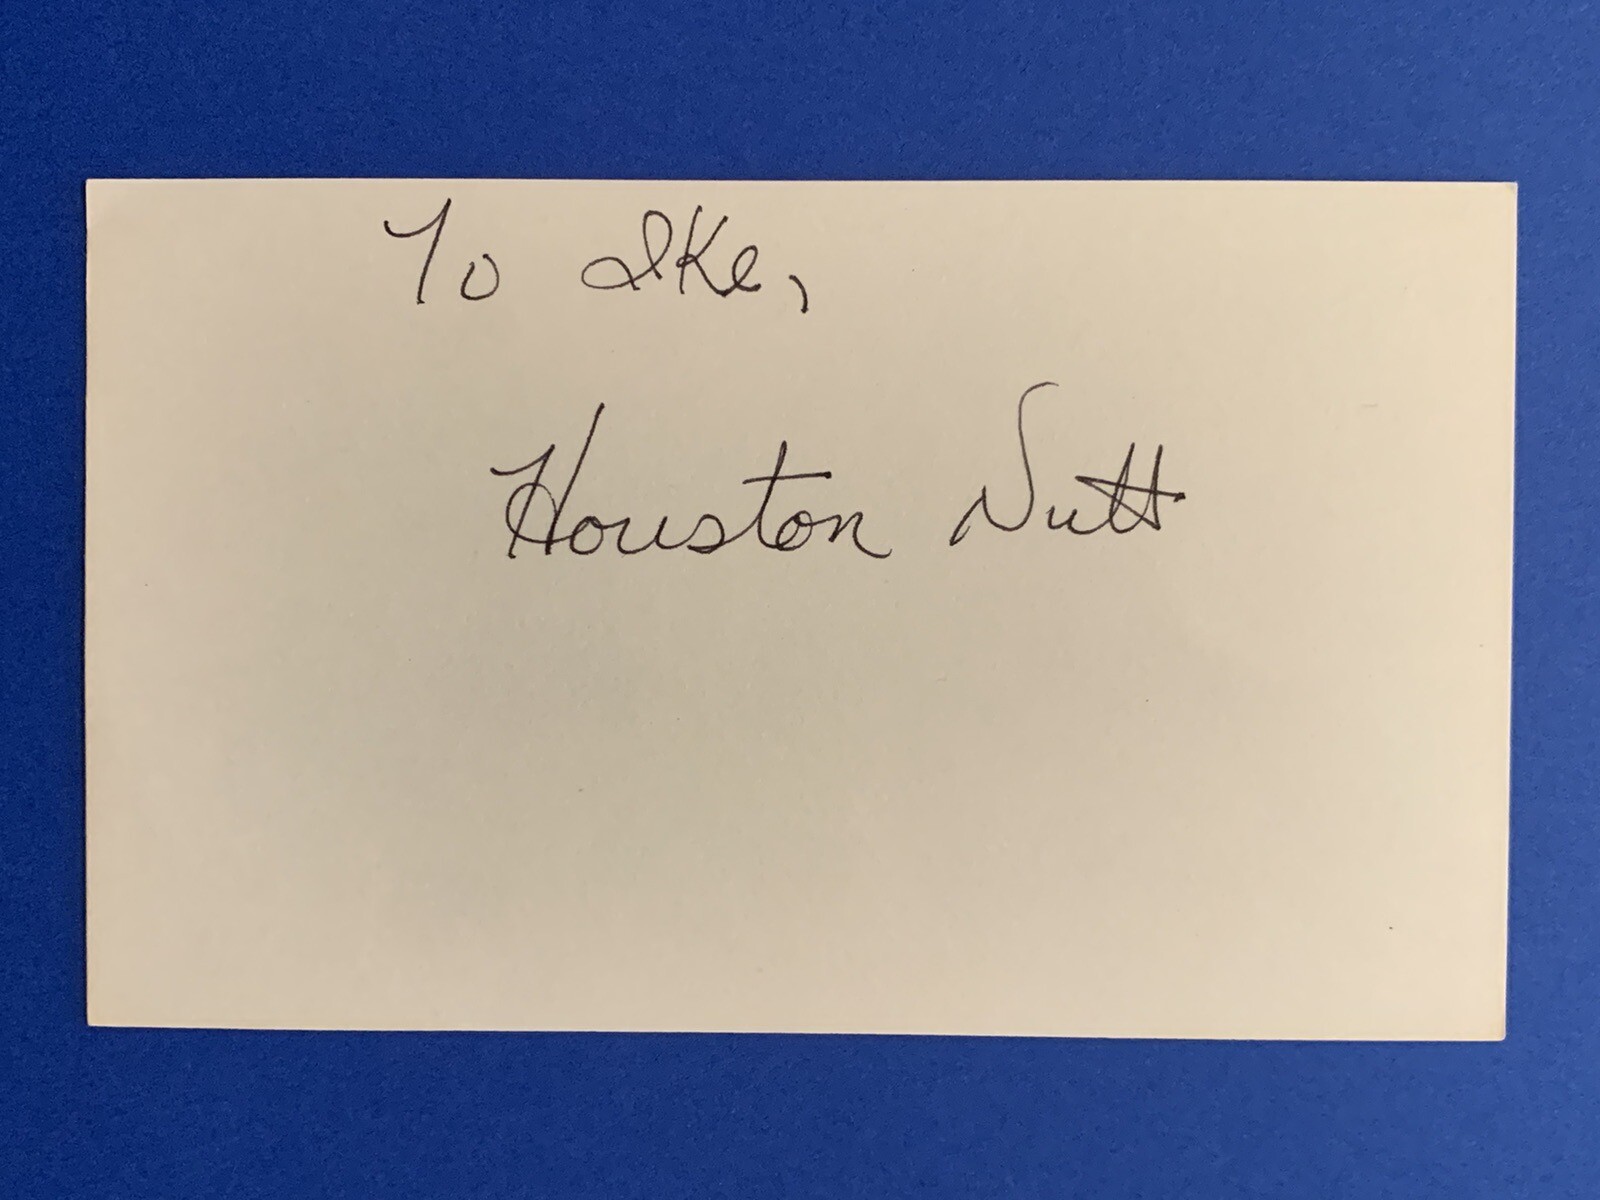 To Ike,
Houston Nutt